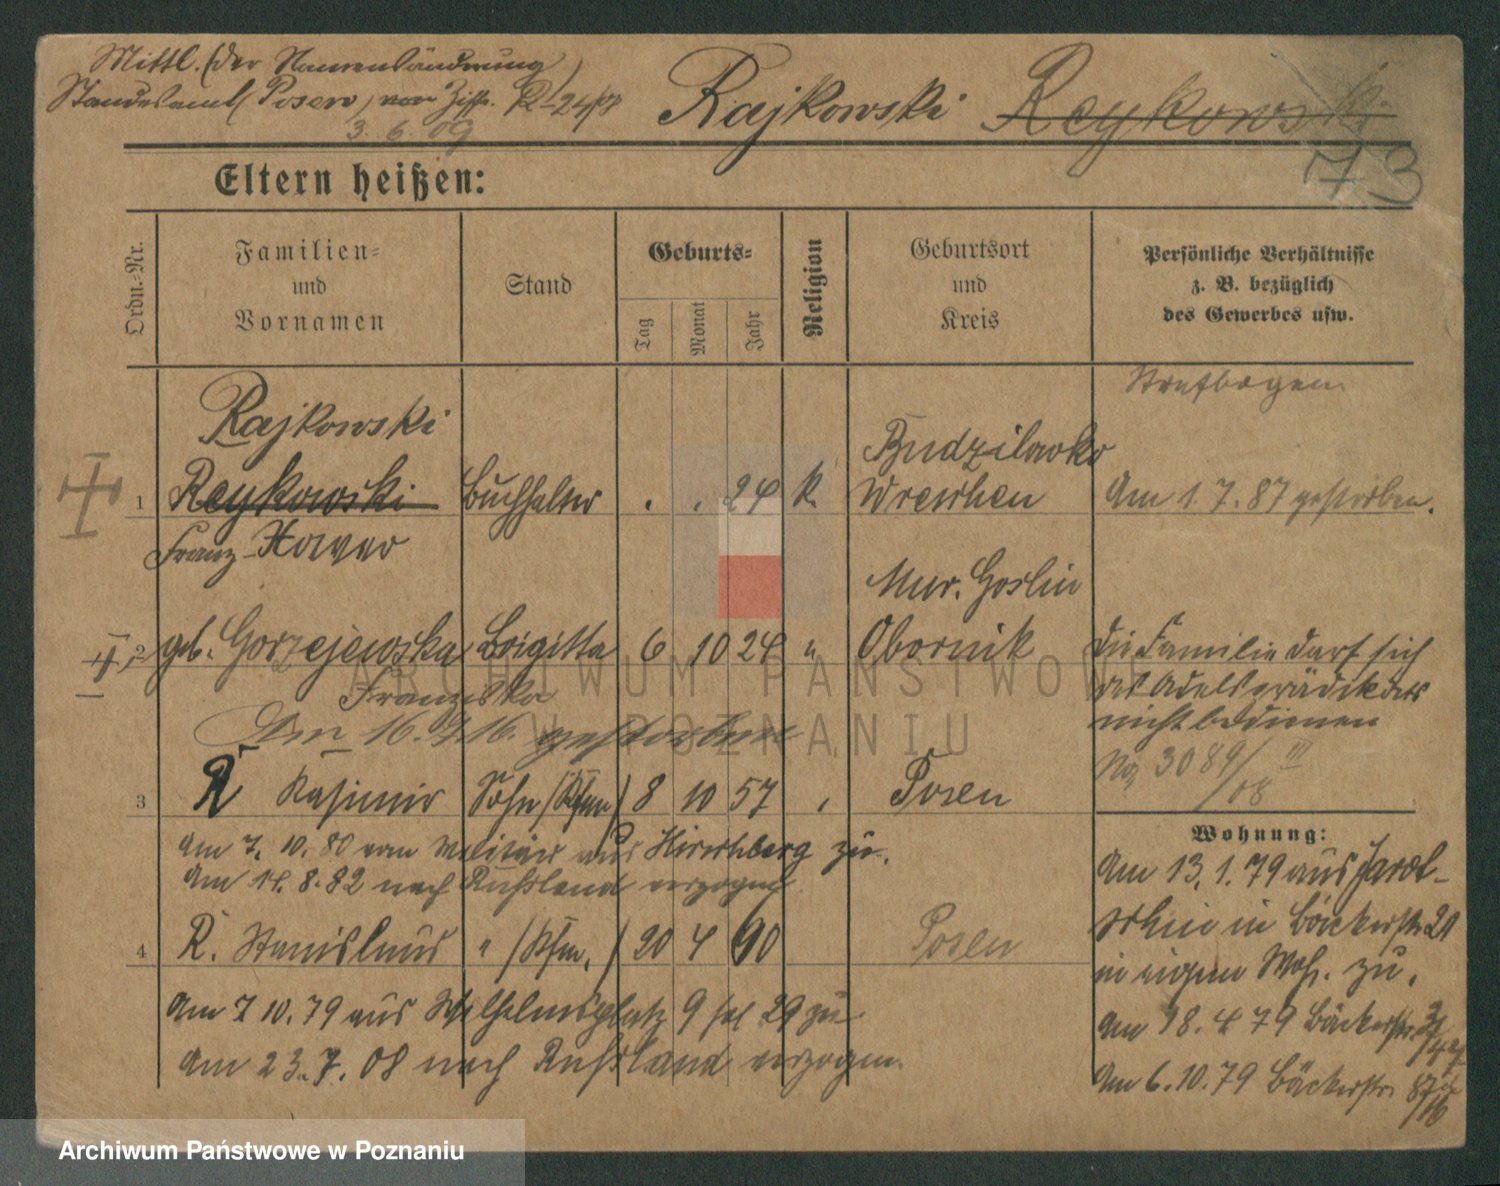 Mittl. (der Namensänderung)
Standesamt Posen, von Ziff. R-24/7
3. 6. 09
Rajkowski Reykowski
73
Eltern heißen:
Ordn.=Nr.
Familien=
und
Vornamen
Stand
Geburts=
Tag
Monat
Jahr
Religion
Geburtsort
und
Kreis
Persönliche Verhältnisse
z. B. bezüglich
des Gewerbes usw.
Strafbogen
Rajkowski
1 Reykowski Buchhalter . . 24 k.
Franz-Xaver
Budzilowko
Wreschen
Am 1.7.87 gestorben.
2 geb. Gorzejewska Brigitta 6 10 24 "
Franziska
Mur. Goslin
Obornik
Die Familie darf sich
des Adelsprädikats
nicht bedienen
No 3089/08 III
Am 16.7.16. gestorben
3 R Kasimir Sohn (Kfm) 8 10 57 , Posen
Am 7. 10. 80 vom Militär aus Hirschberg zu.
Am 14. 8. 82 nach Russland verzogen.
4 R. Stanislaus " (Kfm.) 20 4 60 Posen
Am 7 10. 79 aus Wilhelmsplatz 9 29 zu
Am 23. 7. 08 nach Russland verzogen.
Wohnung:
Am 13. 1. 79 aus Jarot-
schin in Bäckerstr 21
in eigene Woh. zu.
Am 18. 4 79 Bäckerstr.
Am 6. 10. 79 Bäckerstr.
ARCHIWUM PAŃSTWOWE
W POZNANIU
Archiwum Państwowe w Poznaniu